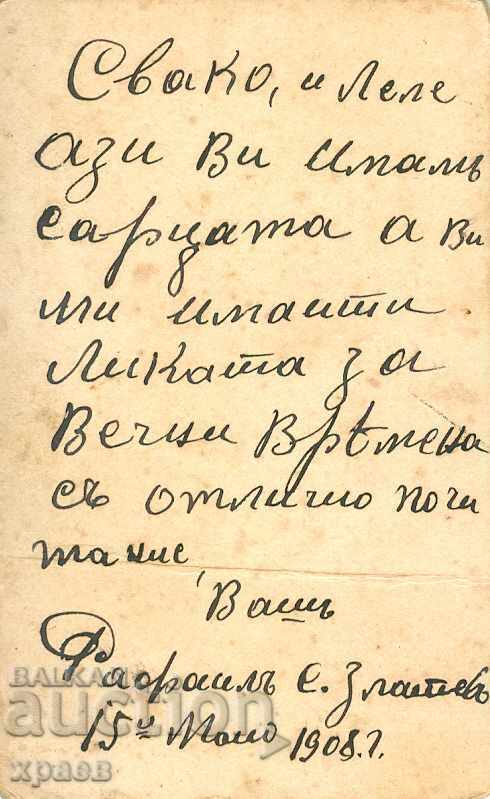 Свако, и Леле
ази Ви имамъ
сарцата а Ви
ми имаити
Ликата за
Вечни Врѣмена
съ отлично почи
тание,
Вашъ
Рафаилъ С. Златевъ
15й Маио 1908.г.
BALKAN
auction
храев